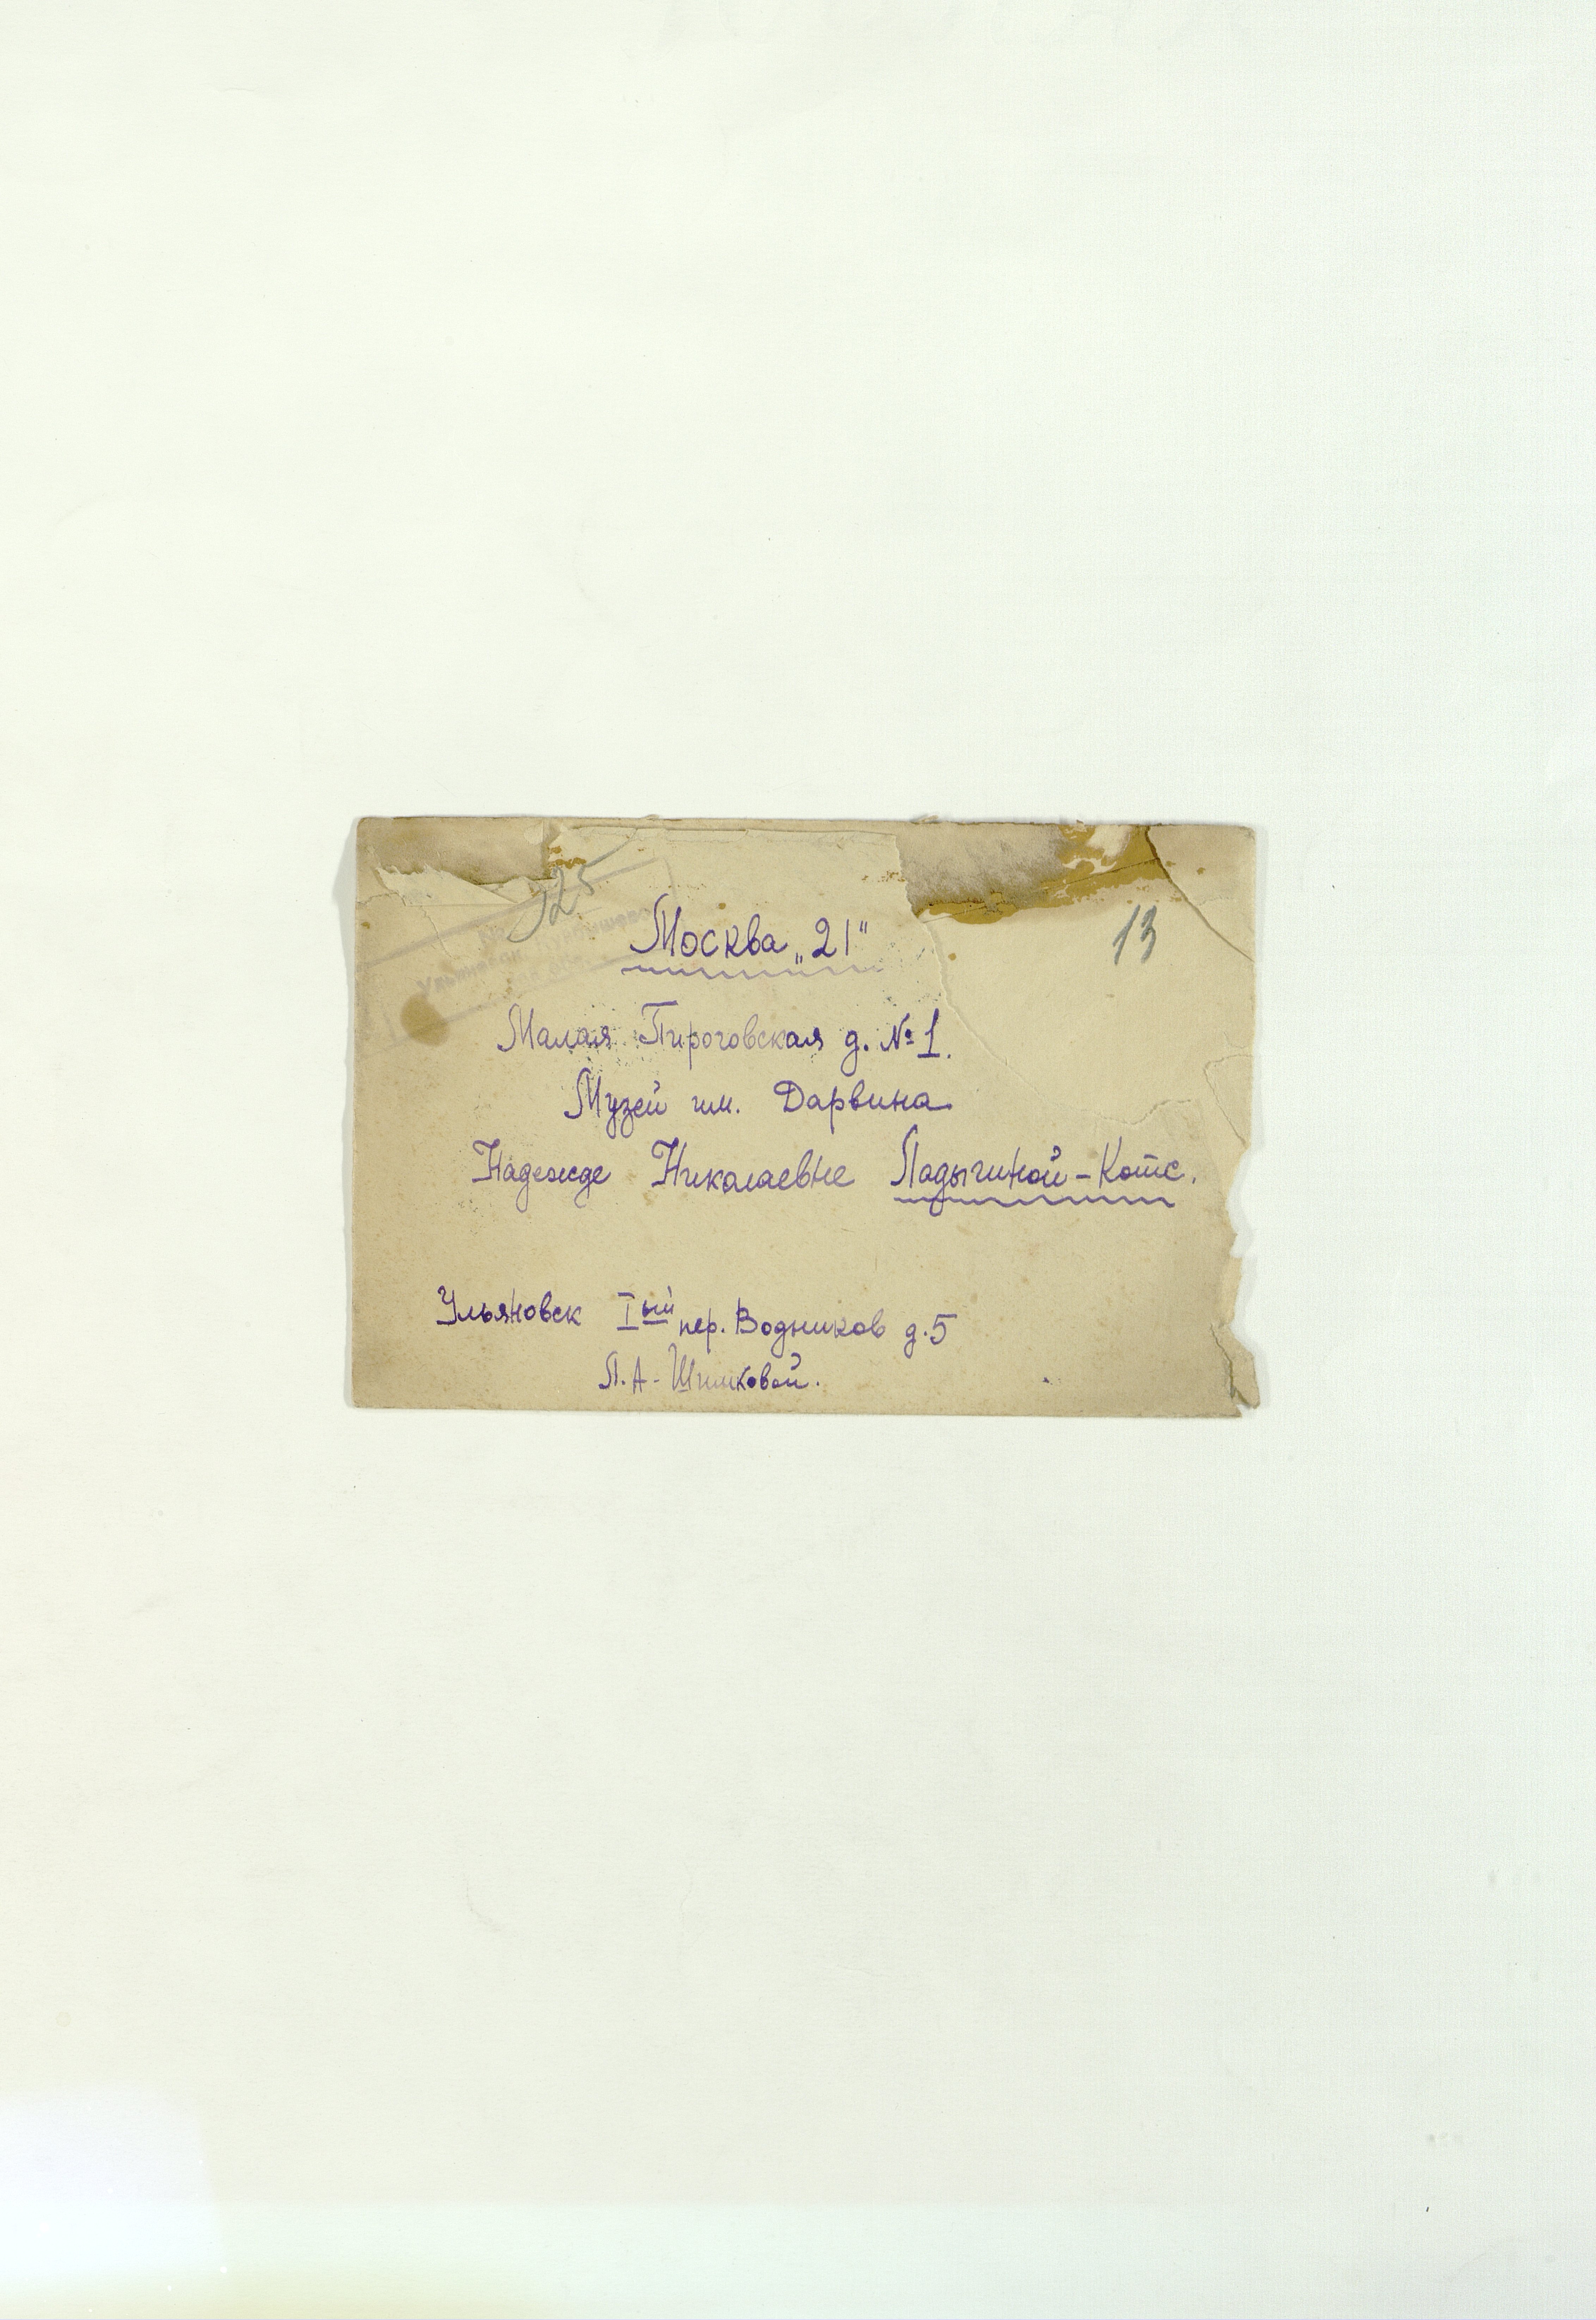 125
Москва „21"
13
Малая Пироговская д. № 1.
Музей им. Дарвина
Надежде Николаевне Ладыгиной-Котс.
Ульяновск Iый пер. Водников д. 5
Л. А. Шишковой.